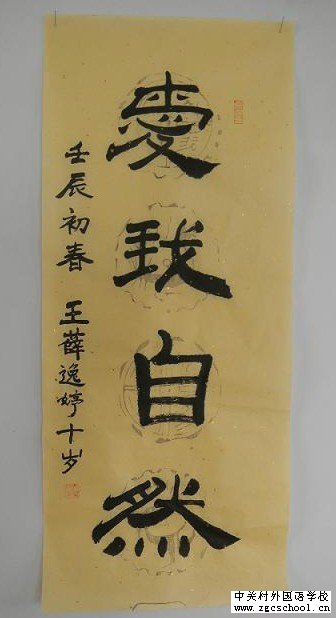 愛我自然
壬辰初春 王薛逸婷十岁
中关村外国语学校
www.zgcschool.cn